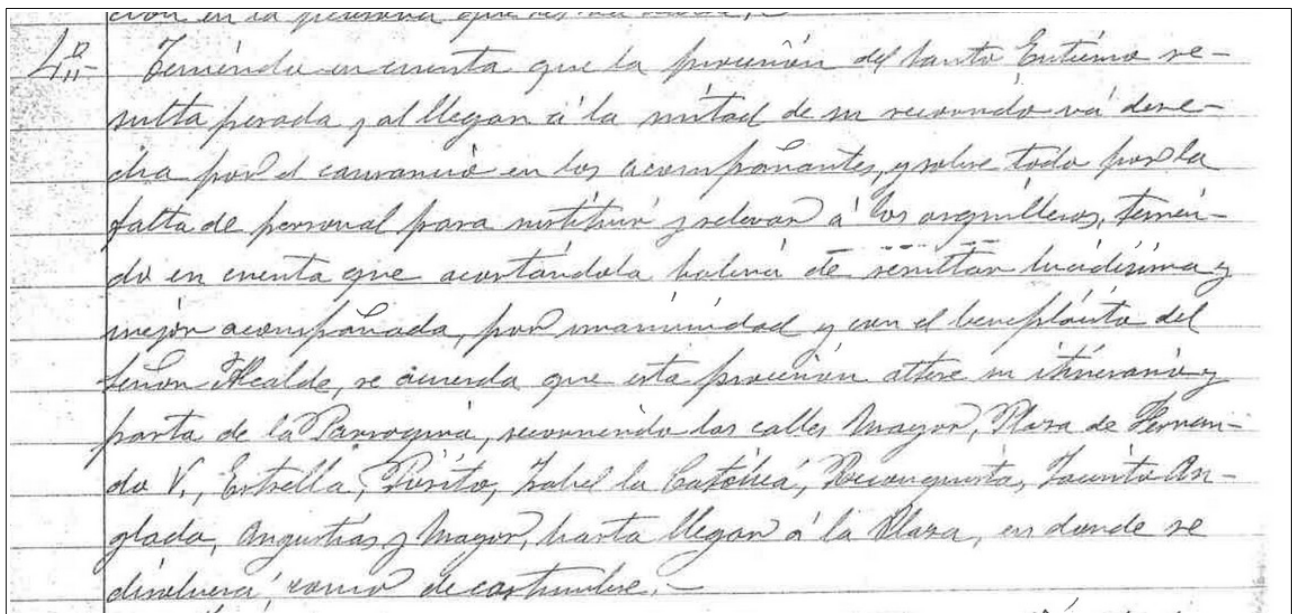 cion en la persona que
4º Teniendo en cuenta que la procesión del Santo Entierro re-
sulta pesada, al llegar á la mitad de su recorrido vá dere-
cha por el cansancio en los acompañantes, y sobre todo por la
falta de personal para sustituir y relevar á los anguilleros, tenien-
do en cuenta que acortándola habría de resultar lucidísima y
mejor acompañada, por unanimidad y con el beneplácito del
Señor Alcalde, se acuerda que esta procesión altere su itinerario y
parta de la Parroquia, recorriendo las calles Mayor, Plaza de Fernan-
do V, Estrella, Pósito, Isabel la Católica, Reconquista, Jacinto An-
glada, Angustias y Mayor, hasta llegar á la Plaza, en donde se
disolverá, como de costumbre.-